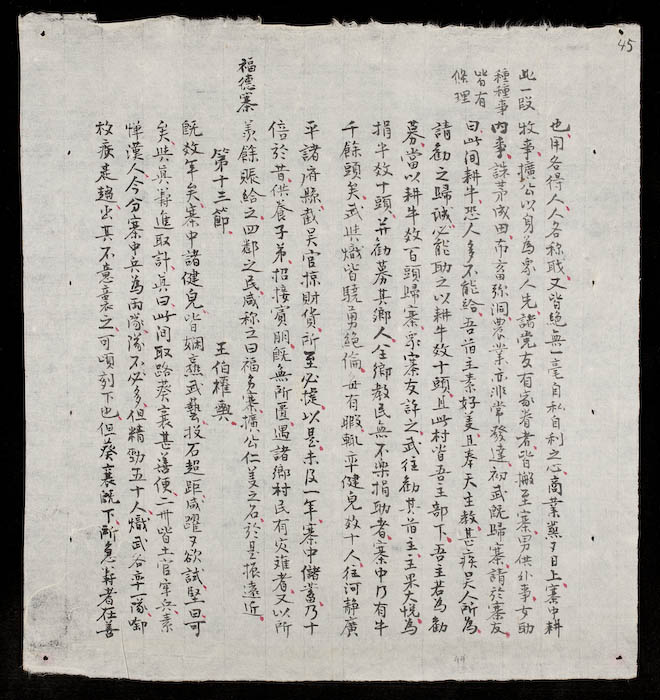 45
此一段
種種事
皆有
條理
也用各得人人各称職又皆絕無一毫自私自利之心商業興日上寨中耕
牧事擴公以身為衆人先諸党友有家眷者皆搬至寨男供外事女助
內事誅茅成田布畜弥洞農業亦非常發達初武既歸寨請於寨友
曰此間耕牛恐人多不能給吾前主素好義且奉天主教甚疾吴人所為
請勸之歸誠必能助之以耕牛数十頭且此村皆吾主部下吾主若為勸
募當以耕牛数百頭歸寨衆寨友許之武往勸其前主主果大悅為
捐牛数十頭并勸募其鄉人全鄉教民無不樂捐助者寨中乃有牛
千餘頭矣武與熾皆驍勇絕倫毎有暇輒率健兒数十人往河静廣
平諸府縣截吴官掠財貨所至必捷以是未及一年寨中儲蓄乃十
倍於昔供養子弟招接賓朋既無所匱遇諸鄉村民有災難者又以所
福德寨
羨餘賑給之四鄰之民咸称之曰福多寨擴公仁義之名於是振遠近
第十三節　王伯權輿
既数年矣寨中諸健兒皆嫻熟武藝投石超距咸躍々欲試堅曰可
矣與真壽進取計真曰此間取路葵襄甚善便二卅皆土官守兵素
憚漢人今分寨中兵為兩隊隊不必多但精勁五十人熾武各率一隊啣
枚疾走趨出其不意襲之可頃刻下也但葵襄既下所急壽者在善